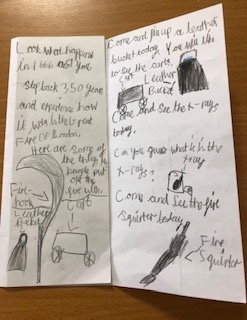 Look what happend
in 1666 as you
step back 350 years
and experience how
it was in the great
Fire of London.
Here are some of
the things
people put
out the
fire with
Fire-
hook
Leather
Bucket
Cart
Come and fill up a leather
bucket today. You will like
to see the carts.
Cart
Leather
Bucket
Come and see the x-rays
today.
Can you guess what is in the
x-rays?
x-ray
Come and see the fire
squirter today
Fire
Squirter